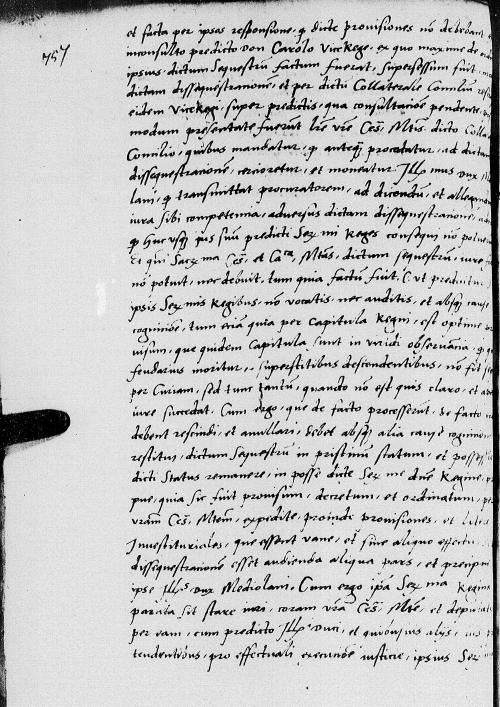 757
et facta per ipsos responsione, q dicte provisiones nō debebant
inconsulto predicto Don Carolo Vicerege, ex quo maxime de
ipsius, dictum sequestrū factum fuerat, supersessum fuit,
dictam dissequestrationē, et per dictū Collaterale Consiliū
eidem Viceregi, super predictis, qua consultatiōe pendente,
modum presentate fuerūt lrē vrē Ces. Mtis dicto Colla
Consilio, quibus mandatur, q anteq procedatur, ad dictam
dissequestrationē, certioretur, et moneatur Ill mus Dux
lani, q transmittat procuratorem, ad dicendū, et allegandū
iura sibi competentia, adversus dictam dissequestrationē,
q huc usq ius suū predicti Sermi Reges consequi nō
Et qui Sacr ma Ces. et Caca Mtas, dictum sequestrū, iure
nō potuit, nec debuit, tum quia factū fuit,
ipsis Sermis Regibus, nō vocatis, nec auditis, et absq cause
cognitiōe, tum etiā quia per Capitula Regni, est optime
visum, que quidem Capitula sunt in viridi observātia, q
feudarius moritur, superstitibus descendentibus, nō
per Curiam, sed tunc tantū, quando nō est quis claro, et
iure succedat. Cum ergo, que de facto processerūt, de facto
debent rescindi, et anullari, debet absq alia cause cognitiōe
restitui, dictum sequestrū in pristinū statum, et
dicti Status remanere, in posse dicte Ser me dnē Regine,
pue, quia sic fuit provisum, decretum, et ordinatum,
vram Ces. Mtem, expedite, proinde provisiones, et
Investituriales, que essent vane, et sine aliquo effectu,
dissequestrationē esset audienda aliqua pars, et
ipse Ills Dux Mediolani. Cum ergo ipa Ser ma Regina
parata sit stare iuri, coram vrā Ces. Mte, et
per eam, cum predicto Ill Duci, et quibusvis alijs,
tendentibus, pro effectuali executiōe iusticie, ipsius Ser